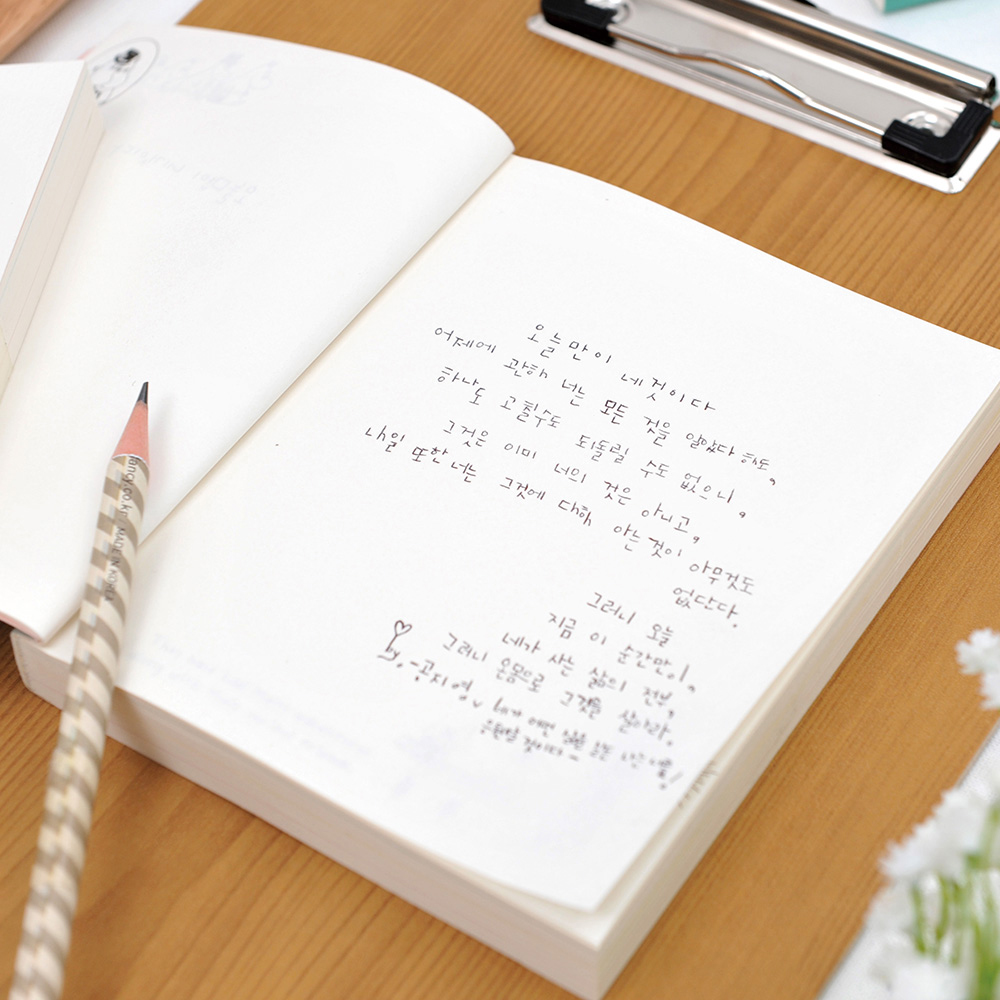 오늘만이 네것이다
어제에 관해 너는 모든 것을 알았다 해도,
하나도 고칠수도 되돌릴 수도 없으니,
그것은 이미 너의 것은 아니고,
내일 또한 너는 그것에 대해 아는것이 아무것도
없단다.
그러니 오늘
지금 이 순간만이,
네가 사는 삶의 전부,
그러니 온몸으로 그것을 살아라.
by. -공지영, 네가 어떤 삶을 살든 나는 너를
응원할 것이다-
fancy.co.kr MADE IN KOREA